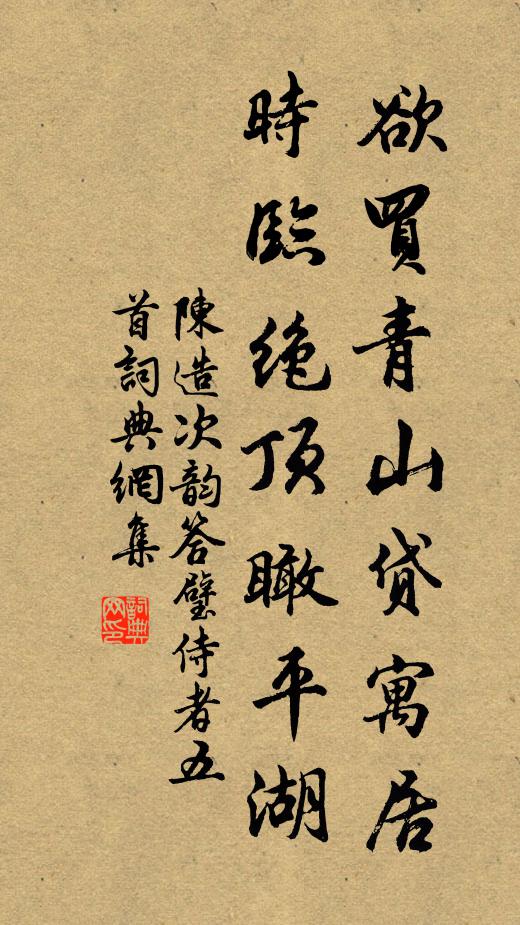 欲買青山貸寓居
時臨絶頂瞰平湖
陳造次韵答璧侍者五
首詞典網集
詞典
网印